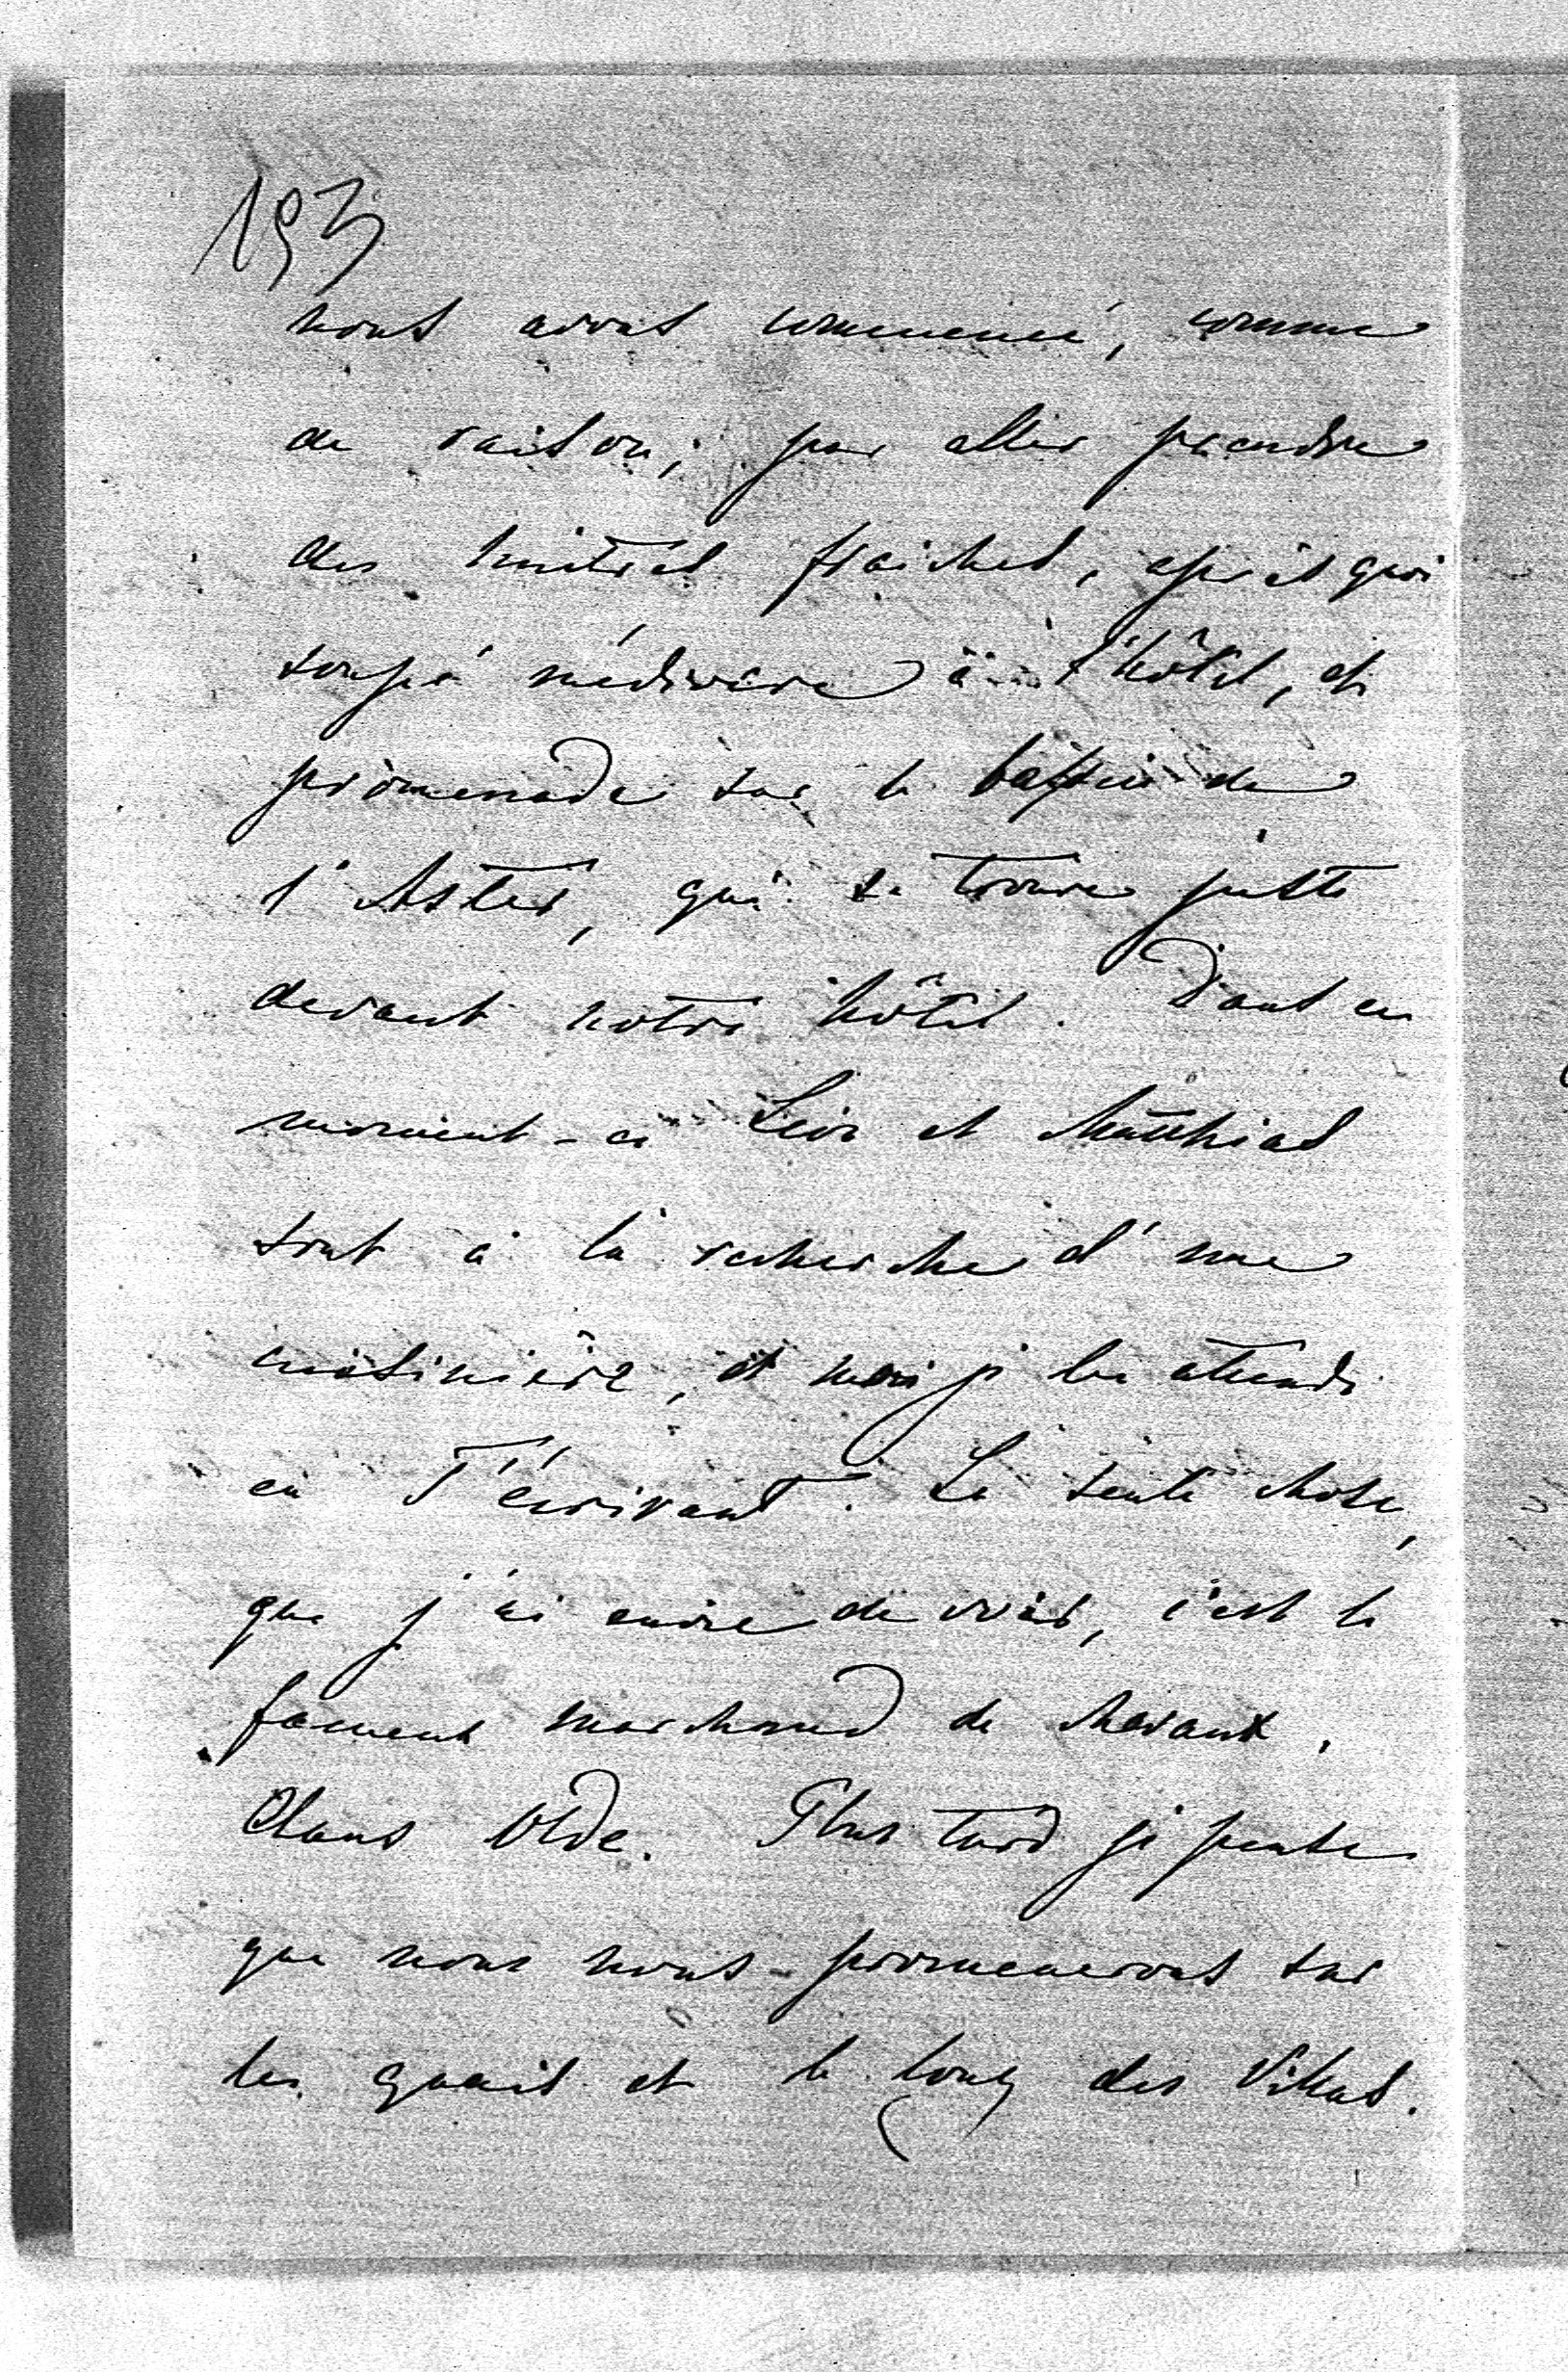 193
nous avons commencé, comme
de raison, par aller prendre
des huîtres fraîches, après quoi
soupé médiocre à l'hôtel, et
promenade sur le bassin de
l'Alster, qui se trouve juste
devant notre hôtel. Dans ce
moment-ci Léon et Matthias
sont à la recherche d'une
cuisinière, et moi je les attends
en T'écrivant. La seule chose,
que j'ai envie de voir, c'est le
fameux marchand de chevaux,
Claus Olde. Plus tard je pense
que nous nous promenerons sur
les quais et le long des Villas.